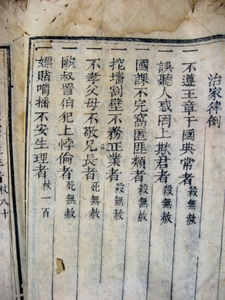 治家律例
一不遵王章于國典常者殺無赦
一誤聽人惑罔上欺君者殺無赦
一國課不完窩匪匪類者殺無赦
一挖墻割壁不務正業者殺無赦
一不孝父母不敬兄長者死無赦
一毆叔詈伯犯上悖倫者死無赦
一嫖賭嚼搖不安生理者杖一百
杖八十